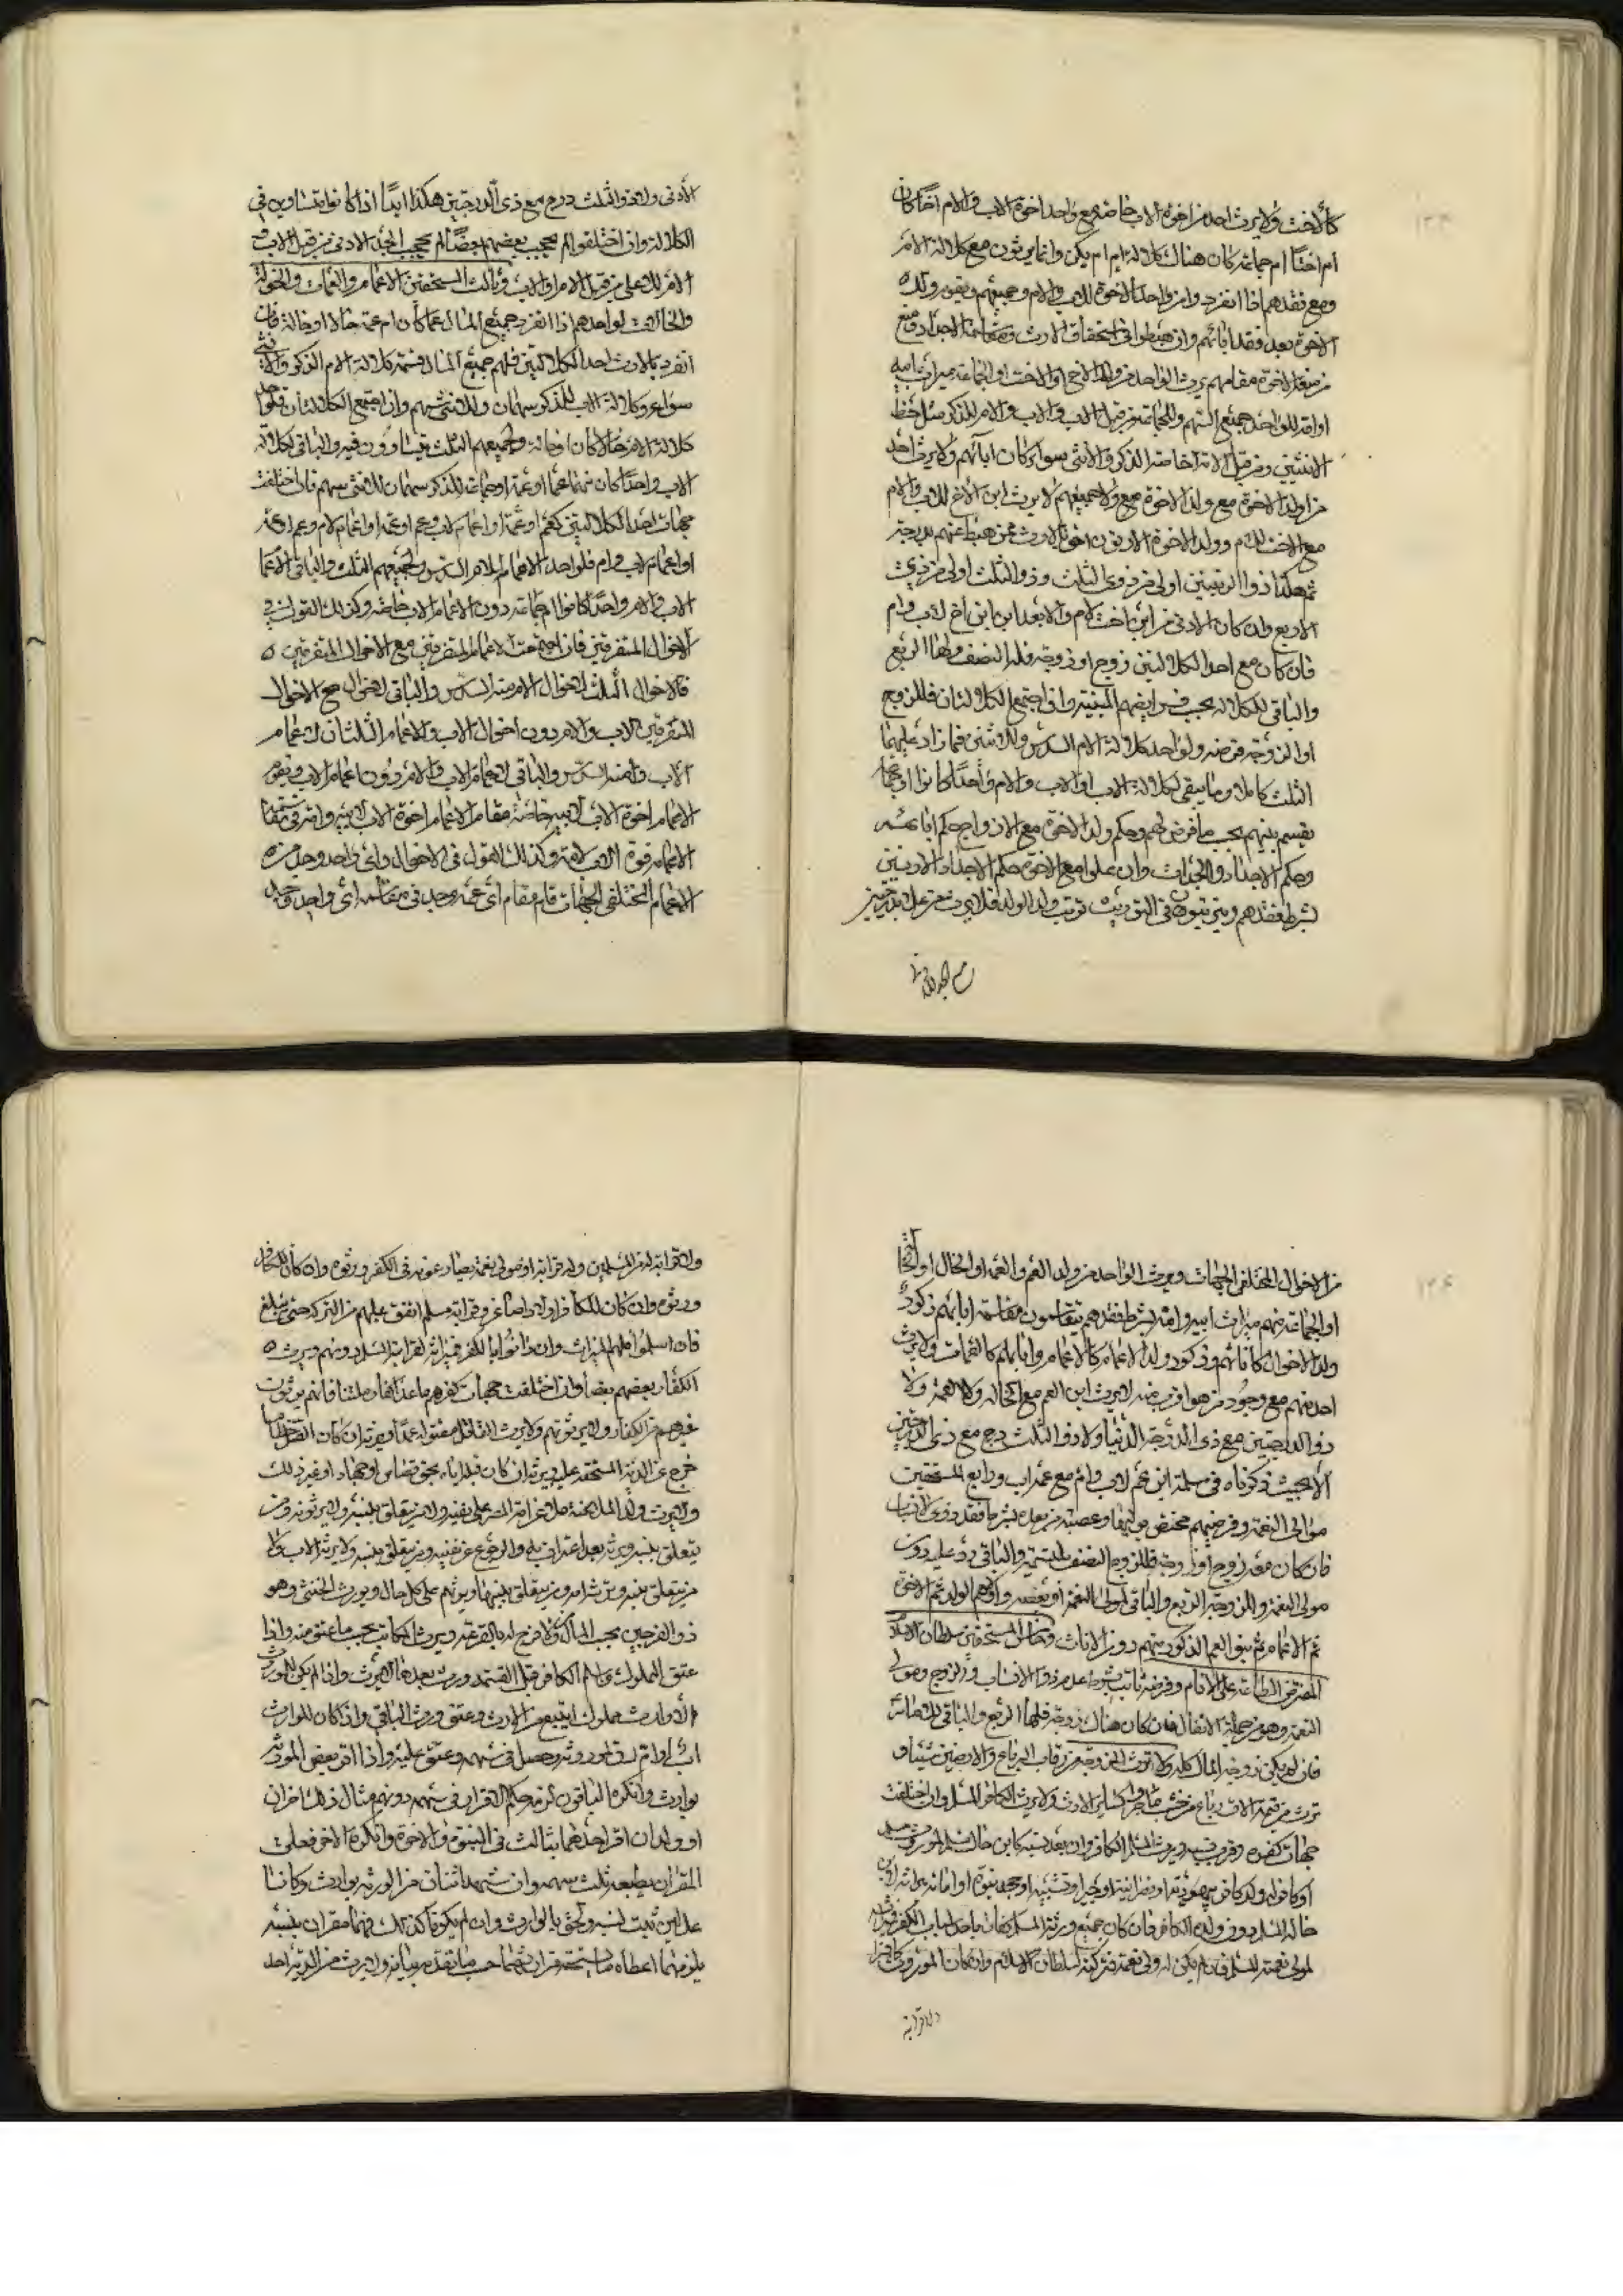 كالاخت ولا يرث احد من اخوة الاب خاصة مع واحد اخوة الاب والام اخا كان
ام اختا ام جماعة كان هناك كلالة ام ام لم يكن وانما يرثون مع كلالة الام
ومع فقدهم اذا انفرد وامر واحد الاخوة للاب والام وجميعهم ويقوم ولد
الاخوة بعد فقد ابائهم وان هبطوا في استحقاق الارث ومقاسمة الاجداد
الاخوة مقامهم يرث الواحد من ولد الاخ او الاخت او الجماعة ميراث ابيه
او امه للواحد جميع السهم وللجماعة من قبل الاب والاب والام للذكر مثل حظ
الانثيين ومن قبل الام خاصة الذكر والانثى سواء كان ابائهم ولا يرث احد
من اولد الاخوة مع ولد الاخوة مع ولا جميعهم لا يرث ابن الاخ للاب والام
مع الاخت للام وولد الاخوة الادنون احق بالارث ممن هبط عنهم بدرجة
ثم هكذا ذوا الرتبتين اولى من ذوي الثلث وذو الثلث اولى من ذي
الاربع وان كان الادنى من ابن اخت لام والابعد ابن ابن اخ لاب وام
فان كان مع احد الكلالتين زوج او زوجة فله النصف ولها الربع
والباقي للكلالة بحسب فرايضهم المبينة وان اجتمع الكلالتان فللزوج
او الزوجة فرضه ولواحد كلالة الام السدس وللاثنين فما زاد عليهما
الثلث كاملا وما يبقى لكلالة الاب او الاب والام واحدا كانوا او جماعة
يقسم بينهم بحسب ما فرض لهم وحكم ولد الاخوة مع الازواج حكم ابائهم
وحكم الاجداد والجدات وان علوا مع الاخوة حكم الاجداد الادنين
بشرط فقدهم ويترتبون في التوريث ترتب ولد الولد فلا يرث من على بدرجتين
الأدنى ولا ذو الثلث درج مع ذي الدرجتين هكذا ابدا اذا كانوا متساوين في
الكلالة وان اختلفوا لم يحجب بعضهم بعضا لم يحجب الجد الادنى من قبل الاب
الام للاعلى من قبل الام او الاب وثالث المستحقين الاعمام والعمات والخولة
والخالات لواحدهم اذا انفرد جميع المال عما كان ام عمة خالا او خالة فان
انفرد بالارث احد الكلالتين فلهم جميع المال قسمة كلالة الام الذكر والانثى
سواء وكلالة الاب للذكر سهمان وللانثى سهم وان اجتمع الكلالتان فلواحد
كلالة الام خالا كان او خالة ولجميعهم الثلث يتساوون فيه والباقي لكلالة
الاب واحدا كان منها عما او عمة او جماعة للذكر سهمان للانثى سهم فان اختلفت
جهات احد الكلالتين كعم او عمة او اعمام لاب وعم او عمة او اعمام لام وعم او عمة
او اعمام لاب وام فلواحد الاعمام للام السدس ولجميعهم الثلث والباقي الاعمام
الاب والام واحدا كانوا ام جماعة دون الاعمام الاب خاصة وكذلك القول في
الاخوال المتفرقين فان اجتمعت الاعمام المتفرقين مع الاخوال المتفرقين
فللاخوال الثلث لاخوال الام منه السدس والباقي لاخوال مع الاخوال
المتفرقين الاب والام دون اخوال الاب والاعمام الثلثان لاعمام
الاب وامه السدس والباقي لاعمام الاب والام دون اعمام الاب ويقوم
الاعمام اخوة الاب لابيه خاصة مقام الاعمام اخوة الاب لابيه وامه في مقاسمة
الاعمام اخوة الاب لامه وكذلك القول في الاخوال واي واحد وجد من
الاعمام المختلفي الجهات قام مقام اي عمة وجد في مقاسمة اي واحد وجد
من الاخوال المختلفي الجهات ويرث الواحد من ولد العم والعمة او الخال او الخالة
او الجماعة منهم ميراث ابيه وامه بشرط فقدهم يتقاسمون مقاسمة ابائهم ذكور
ولد الاخوال كاناثهم وذكور ولد الاعمام كالاعمام واناثهم كالعمات ولا يرث
احد منهم مع وجود من هو اقرب منه لا يرث ابن العم مع الخالة ولا العمة ولا
ذو الدرجتين مع ذي الدرجة الدنيا ولا ذو الثلث درج مع ذي الدرجتين
الا بحيث ذكرناه في مسئلة ابن عم لاب وام مع عم اب ورابع المستحقين
موالي النعمة وفرضهم مختص بوليها وعصبته من بعده بشرط فقد ذوي الانساب
فان كان معه زوج او زوجة فللزوج النصف بالتسمية والباقي رد عليه دون
مولى النعمة وللزوجة الربع والباقي لمولى النعمة او عصبته واولاهم الولد ثم الاخوة
ثم الاعمام ثم بنو العم الذكور منهم دون الاناث وخامس المستحقين سلطان الاسلام
المفترض الطاعة على الانام وفرضه ثابت بشرط عدم ذوي الانساب والزوج ومولى
النعمة وهو من جملة الانفال فان كان هناك زوجة فلها الربع والباقي للامام
فان لم يكن زوجة المال كله ولا ترث الزوجة من رقاب الرباع والارضين شيئا و
ترث من قيمة الات الرباع من خشب ولا يرث الكافر المسلم وان اختلفت
جهات كفره وقرب نسبه ويرث المسلم الكافر وان بعد نسبه كابن خال مسلم لموروث
او كافر له ولد كافر بيهودية او نصرانية او جبر او تشبيه او جحد نبوة او امامة ميراثه لابن
خاله المسلم دون ولده الكافر فان كان جميع ورثة المسلم كفارا باحد اسباب الكفر فميراثه
لمولى نعمته المسلم فان لم يكن له ولي نعمة فتركته لسلطان الاسلام وان كان الموروث كافرا
ولا قرابة
ولا قرابة له من المسلمين وله قرابة او مولى نعمة يضارعونه في الكفر ورثوه وان كان للكافر
ورثوه وان كان للكافر اولاد اصاغر وقرابة مسلم انفق عليهم من التركة حتى يبلغوا
فان اسلموا فلهم الميراث وان دانوا بالكفر فميراثه لقرابته المسلم دونهم ويرث
الكفار بعضهم بعضا وان اختلفت جهات كفرهم ما عدا كفار ملتنا فانهم يرثون
غيرهم من الكفار ولا يرثونهم ولا يرث القاتل مقتوله عمدا ويرثه ان كان القتل خطأ
خرج عن الدية المستحقة عليه ويرثه ان كان قتله اياه بحق قصاص او جهاد او غير ذلك
ولا يرث ولد الملاعنة ملاعن امه المصر على نفيه ولا من يتعلق بنسبه ولا يرثونه ومن
يتعلق بنسبه ويرثه بعد اعترافه به والرجوع عن نفيه ومن يتعلق بنسبه ولا يرثه الاب ولا
من يتعلق بنسبه وترثه امه ومن يتعلق بنسبها ويرثهم على كل حال ويورث الخنثى وهو
ذو الفرجين بحسب المال فما خرج له بالقرعة ويرث المكاتب بحسب ما عتق منه واذا
عتق المملوك واسلم الكافر قبل القسمة ورث بعدها لم يرث واذا لم يكن للموروث
الا وارث مملوك ابتيع من الارث وعتق وورث الباقي واذا كان للوارث
واذا اقر بعض المورثة
بوارث وانكره الباقون لزمه حكم الاقرار في سهمه دونهم مثال ذلك اخوان
او ولدان اقر احدهما بثالث في البنوة والاخوة وانكره الاخر فعلى
المقر ان يعطيه ثلث سهمه وان شهد اثنان من الورثة بوارث وكانا
عدلين ثبت نسبه ولحق بالوارث وان لم يكونا كذلك فهما مقران بنسبه
يلزمهما اعطاه ما يستحقه من ارثهما حسب ما تقدم بيانه ولا يرث من الدية احد